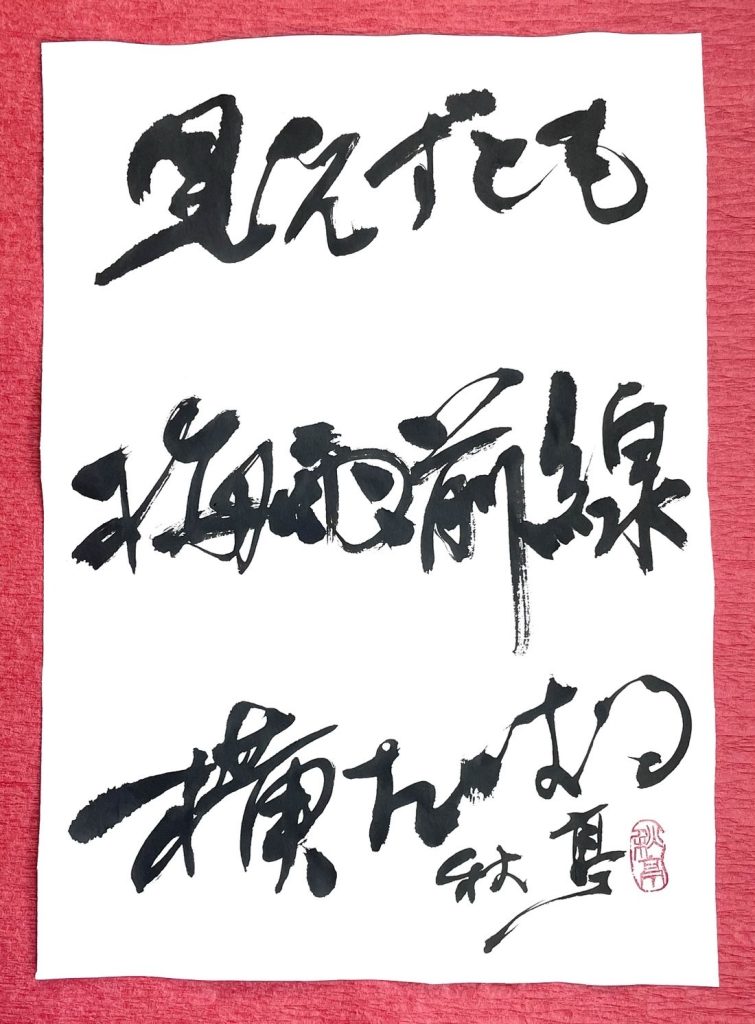 見えずとも
梅雨前線
横たはる
秋亭
秋亭